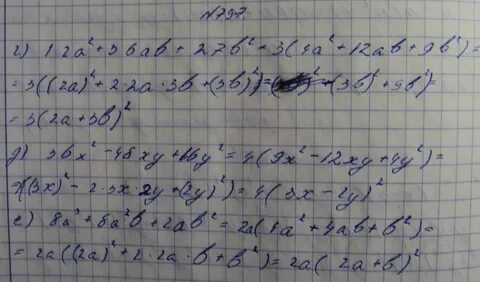 №797
г) 12a²+36ab+27b²=3(4a²+12ab+9b²)=
=3((2a)²+2·2a·3b+(3b)²)=
=3(2a+3b)²
д) 36x²-48xy+16y²=4(9x²-12xy+4y²)=
=4((3x)²-2·3x·2y+(2y)²)=4(3x-2y)²
е) 8a³+8a²b+2ab²=2a(4a²+4ab+b²)=
=2a((2a)²+2·2a·b+b²)=2a(2a+b)²